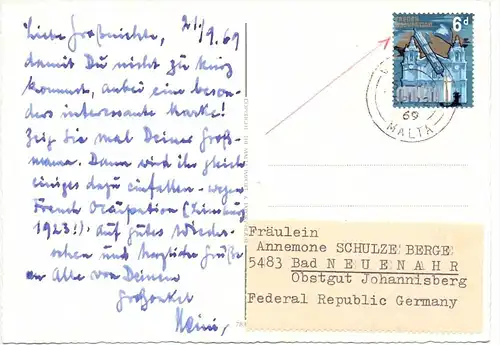 21./9.69
Liebe Großnichte,
damit Du nicht zu kurz
kommst, anbei eine beson-
ders interessante Marke!
Zeig Sie mal Deiner Groß-
mama. Dann wird ihr gleich
einiges dazu einfallen - wegen
French Ocupation (
1923!). Auf gutes Wieder-
sehen und herzliche Grüße
an Alle von Deinem
Großonkel
Heini,
6d
69
MALTA
Fräulein
Annemone SCHULZE BERGE
5483 Bad NEUENAHR
Obstgut Johannisberg
Federal Republic Germany